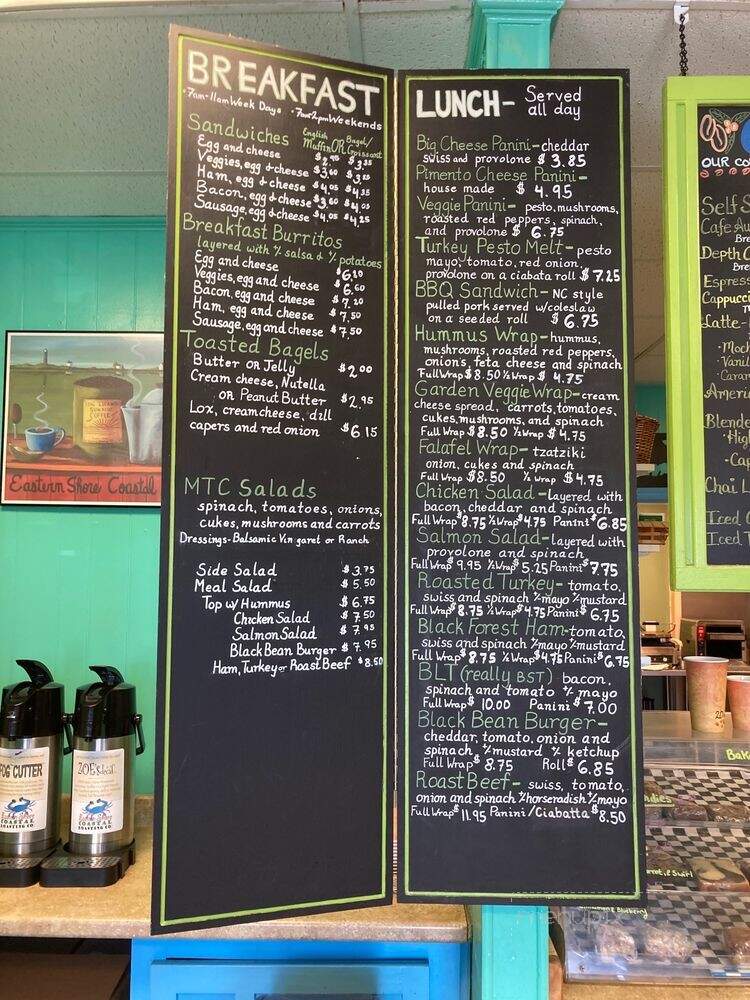 BREAKFAST
• 7am-11am Week Days • 7am-2pm Weekends
Sandwiches English Muffin OR Bagel/Croissant
Egg and cheese
Veggies, egg & cheese $3.60
Ham, egg & cheese $4.05 $4.35
Bacon, egg & cheese $3.60 $4.05
Sausage, egg & cheese $4.05 $4.25
Breakfast Burritos
layered with +/- salsa & +/- potatoes
Egg and cheese $6.20
Veggies, egg and cheese $6.60
Bacon, egg and cheese $7.20
Ham, egg and cheese $7.50
Sausage, egg and cheese $7.50
Toasted Bagels
Butter OR Jelly $2.00
Cream cheese, Nutella
OR Peanut Butter $2.95
Lox, creamcheese, dill
capers and red onion $6.15
MTC Salads
spinach, tomatoes, onions,
cukes, mushrooms and carrots
Dressings-Balsamic Vinigaret or Ranch
Side Salad $3.75
Meal Salad $5.50
Top w/ Hummus $6.75
Chicken Salad $7.50
Salmon Salad $7.95
Black Bean Burger $7.95
Ham, Turkey or Roast Beef $8.50
LUNCH- Served
all day
Big Cheese Panini-cheddar
swiss and provolone $3.85
Pimento Cheese Panini-
house made $4.95
Veggie Panini- pesto, mushrooms,
roasted red peppers, spinach,
and provolone $6.75
Turkey Pesto Melt- pesto
mayo, tomato, red onion,
provolone on a ciabata roll $7.25
BBQ Sandwich- NC style
pulled pork served w/coleslaw
on a seeded roll $6.75
Hummus Wrap-hummus,
mushrooms, roasted red peppers,
onions, feta cheese and spinach
Full Wrap $8.50 ½ Wrap $4.75
Garden Veggie Wrap-cream
cheese spread, carrots, tomatoes,
cukes, mushrooms, and spinach
Full Wrap $8.50 ½ Wrap $4.75
Falafel Wrap- tzatziki
onion, cukes and spinach
Full Wrap $8.50 ½ Wrap $4.75
Chicken Salad-layered with
bacon, cheddar and spinach
Full Wrap $8.75 ½ Wrap $4.75 Panini $6.85
Salmon Salad-layered with
provolone and spinach
Full Wrap $9.95 ½ Wrap $5.25 Panini $7.75
Roasted Turkey- tomato,
swiss and spinach +/- mayo +/- mustard
Full Wrap $8.75 ½ Wrap $4.75 Panini $6.75
Black Forest Ham-tomato,
swiss and spinach +/- mayo +/- mustard
Full Wrap $8.75 ½ Wrap $4.75 Panini $6.75
BLT (really BST) bacon,
spinach and tomato +/- mayo
Full Wrap $10.00 Panini $7.00
Black Bean Burger-
cheddar, tomato, onion and
spinach, +/- mustard +/- ketchup
Full Wrap $8.75 Roll $6.85
Roast Beef- swiss, tomato,
onion and spinach +/- horseradish +/- mayo
Full Wrap $11.95 Panini/Ciabatta $8.50
OUR CO
Self S
Cafe Au
Depth C
Espress
Cappucci
Latte-
• Moch
• Vanil
• Caram
Ameri
Blende
Chai L
Iced
Iced
Eastern Shore Coastal
FOG CUTTER
COASTAL
ROASTING CO
ZOE's
COASTAL
ROASTING CO